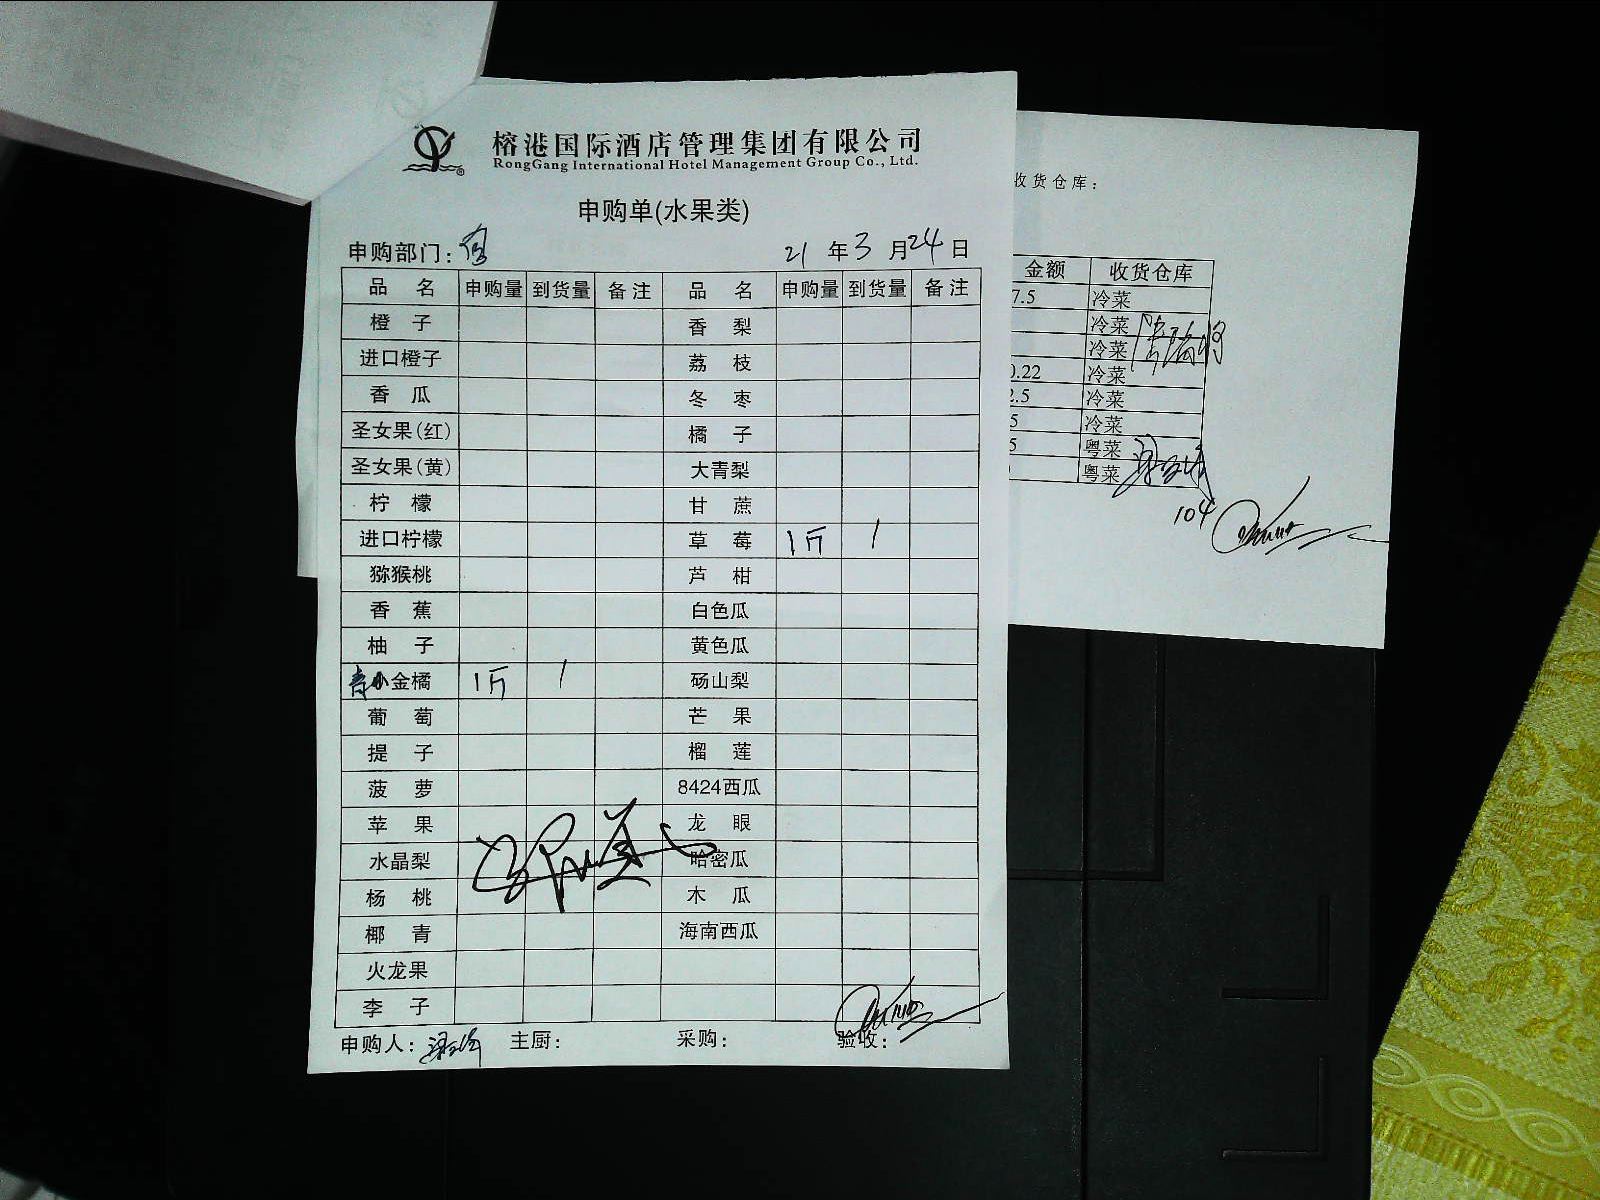 榕港国际酒店管理集团有限公司
RongGang International Hotel Management Group Co., Ltd.
申购单(水果类)
申购部门: 21 年 3 月 24 日
品 名 申购量 到货量 备注 品 名 申购量 到货量 备注
橙 子 香 梨
进口橙子 荔 枝
香 瓜 冬 枣
圣女果(红) 橘 子
圣女果(黄) 大青梨
柠 檬 甘 蔗
进口柠檬 草 莓 1斤 1
猕猴桃 芦 柑
香 蕉 白色瓜
柚 子 黄色瓜
青小金橘 1斤 1 砀山梨
葡 萄 芒 果
提 子 榴 莲
菠 萝 8424西瓜
苹 果 龙 眼
水晶梨 哈密瓜
杨 桃 木 瓜
椰 青 海南西瓜
火龙果
李 子
申购人: 主厨: 采购: 验收:
收货仓库:
金额 收货仓库
7.5 冷菜
冷菜
冷菜
0.22 冷菜
2.5 冷菜
5 冷菜
5 粤菜
粤菜
104